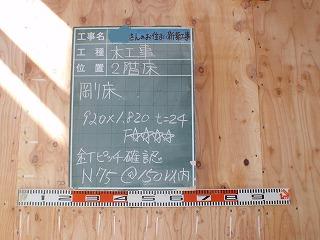 工事名 さんのお住まい新築工事
工種 木工事
位置 2階床
剛床
920×1.820 t=24
F☆☆☆☆
釘ピッチ確認
N75 @150以内
1 2 3 4 5 6 7 8 9